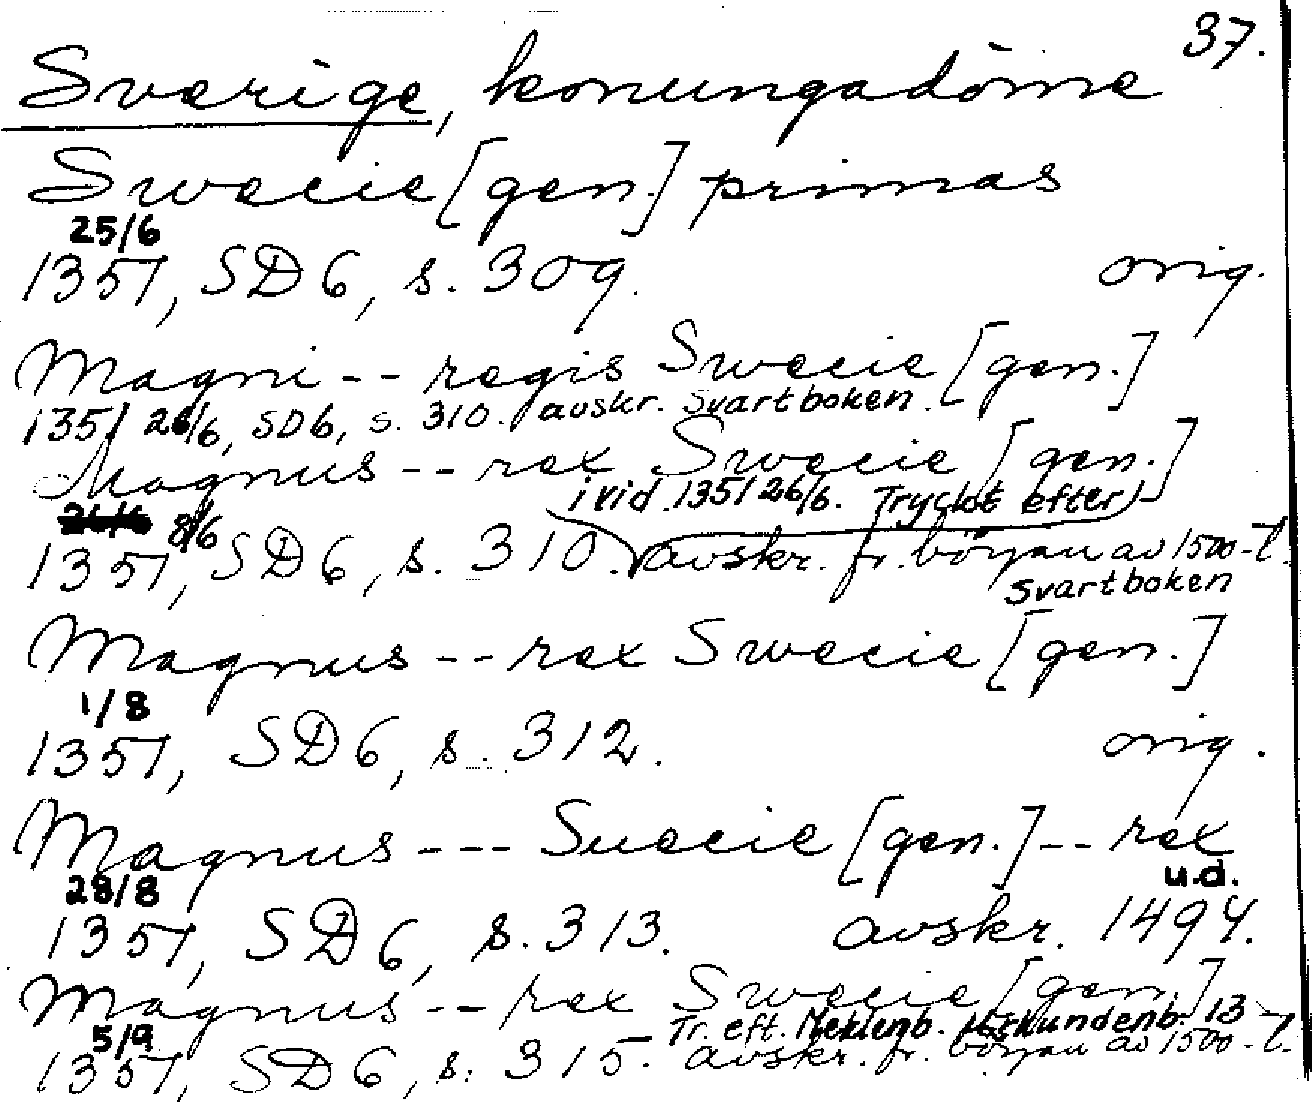 37.
Sverige, konungadöme
Swecie [gen.] primas
25/6
1351, SD 6, s. 309. orig.
Magni -- regis Swecie [gen.]
1351 26/6, SD6, s. 310. avskr. Svartboken.
Magnus -- rex Swecie [gen.]
i vid. 1351 26/6. Tryckt efter
8/6
1351, SD 6, s. 310. avskr. fr. början av 1500-t.
Svartboken
Magnus -- rex Swecie [gen.]
1/8
1351, SD 6, s. 312. orig.
Magnus --- Suecie [gen.] -- rex
28/8 u.d.
1351, SD 6, s. 313. avskr. 1494.
Magnus -- rex Swecie [gen.]
5/9 Tr. eft. Meklenb. Urkundenb. 13
1351, SD 6, s. 315. avskr. fr. början av 1500-t.